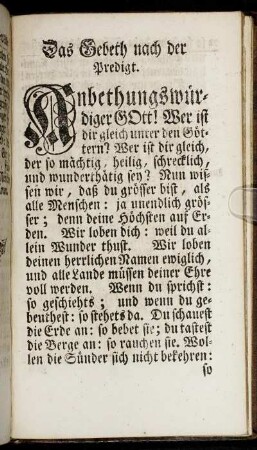 Das Gebeth nach der
Predigt.
Anbethungswür-
diger GOtt! Wer ist
dir gleich unter den Göt-
tern? Wer ist dir gleich,
der so mächtig, heilig, schrecklich,
und wunderthätig sey? Nun wis-
sen wir, daß du grösser bist, als
alle Menschen: ja unendlich grös-
ser; denn deine Höchsten auf Er-
den. Wir loben dich: weil du al-
lein Wunder thust. Wir loben
deinen herrlichen Namen ewiglich,
und alle Lande müssen deiner Ehre
voll werden. Wenn du sprichst:
so geschiehts; und wenn du ge-
beuthest: so stehets da. Du schauest
die Erde an: so bebet sie; du tastest
die Berge an: so rauchen sie. Wol-
len die Sünder sich nicht bekehren:
so